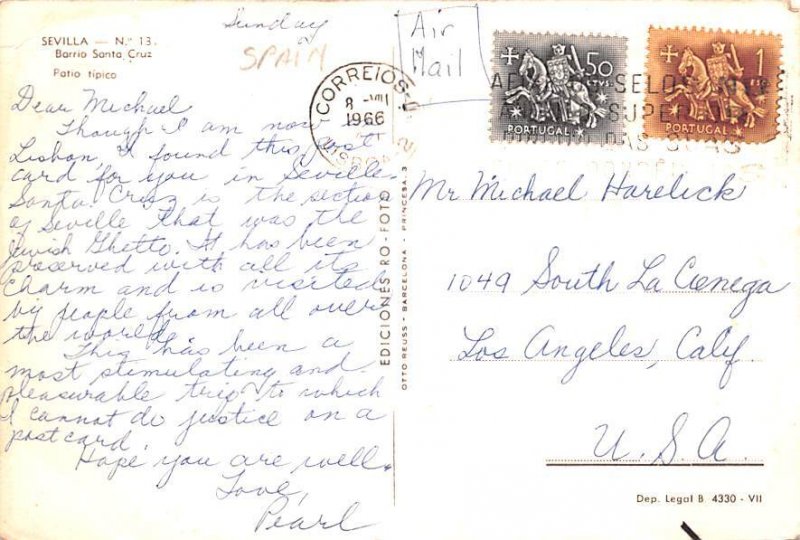 Sunday
SPAIN
SEVILLA — N.º 13.
Barrio Santa Cruz
Patio típico
Dear Michael
Though I am now
Lisbon I found this post
card for you in Seville.
Santa Cruz is the section
of Seville that was the
Jewish Ghetto. It has been
preserved with all its
charm and is visited
by people from all over
the world.
This has been a
most stimulating and
pleasurable trip to which
I cannot do justice on a
postcard.
Hope you are well.
Love,
Pearl
EDICIONES RO-FOTO
OTTO REUSS - BARCELONA - PRINCESA, 3
Air
Mail
CORREIOS
8 VIII
1966
50
PORTUGAL
1
PORTUGAL
SELOS
Mr Michael Harelick
1049 South La Cienega
Los Angeles, Calif.
U.S.A.
Dep. Legal B. 4330 - VII